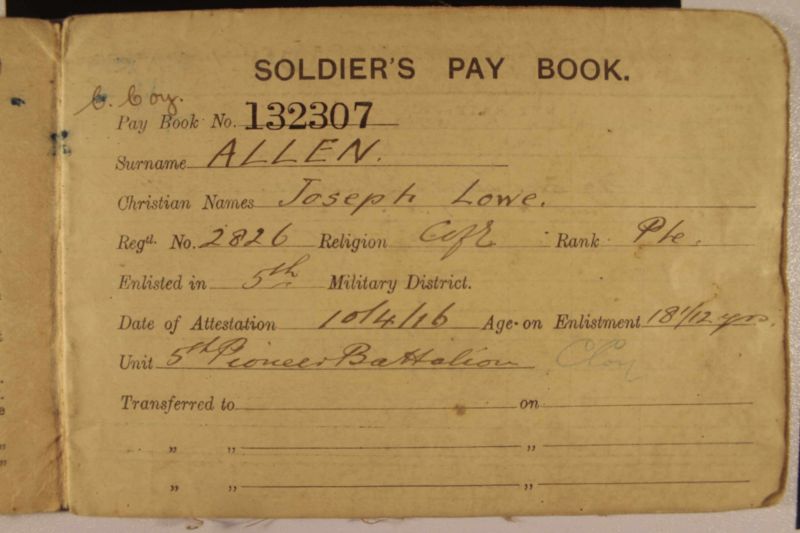 SOLDIER'S PAY BOOK.
C. Coy.
Pay Book No. 132307
Surname ALLEN.
Christian Names Joseph Lowe.
Regtl. No. 2826 Religion CofE Rank Pte.
Enlisted in 5th Military District.
Date of Attestation 10/4/16 Age on Enlistment 18 1/12 yrs.
Unit 5th Pioneer Battalion C Coy
Transferred to on
" " "
" " "